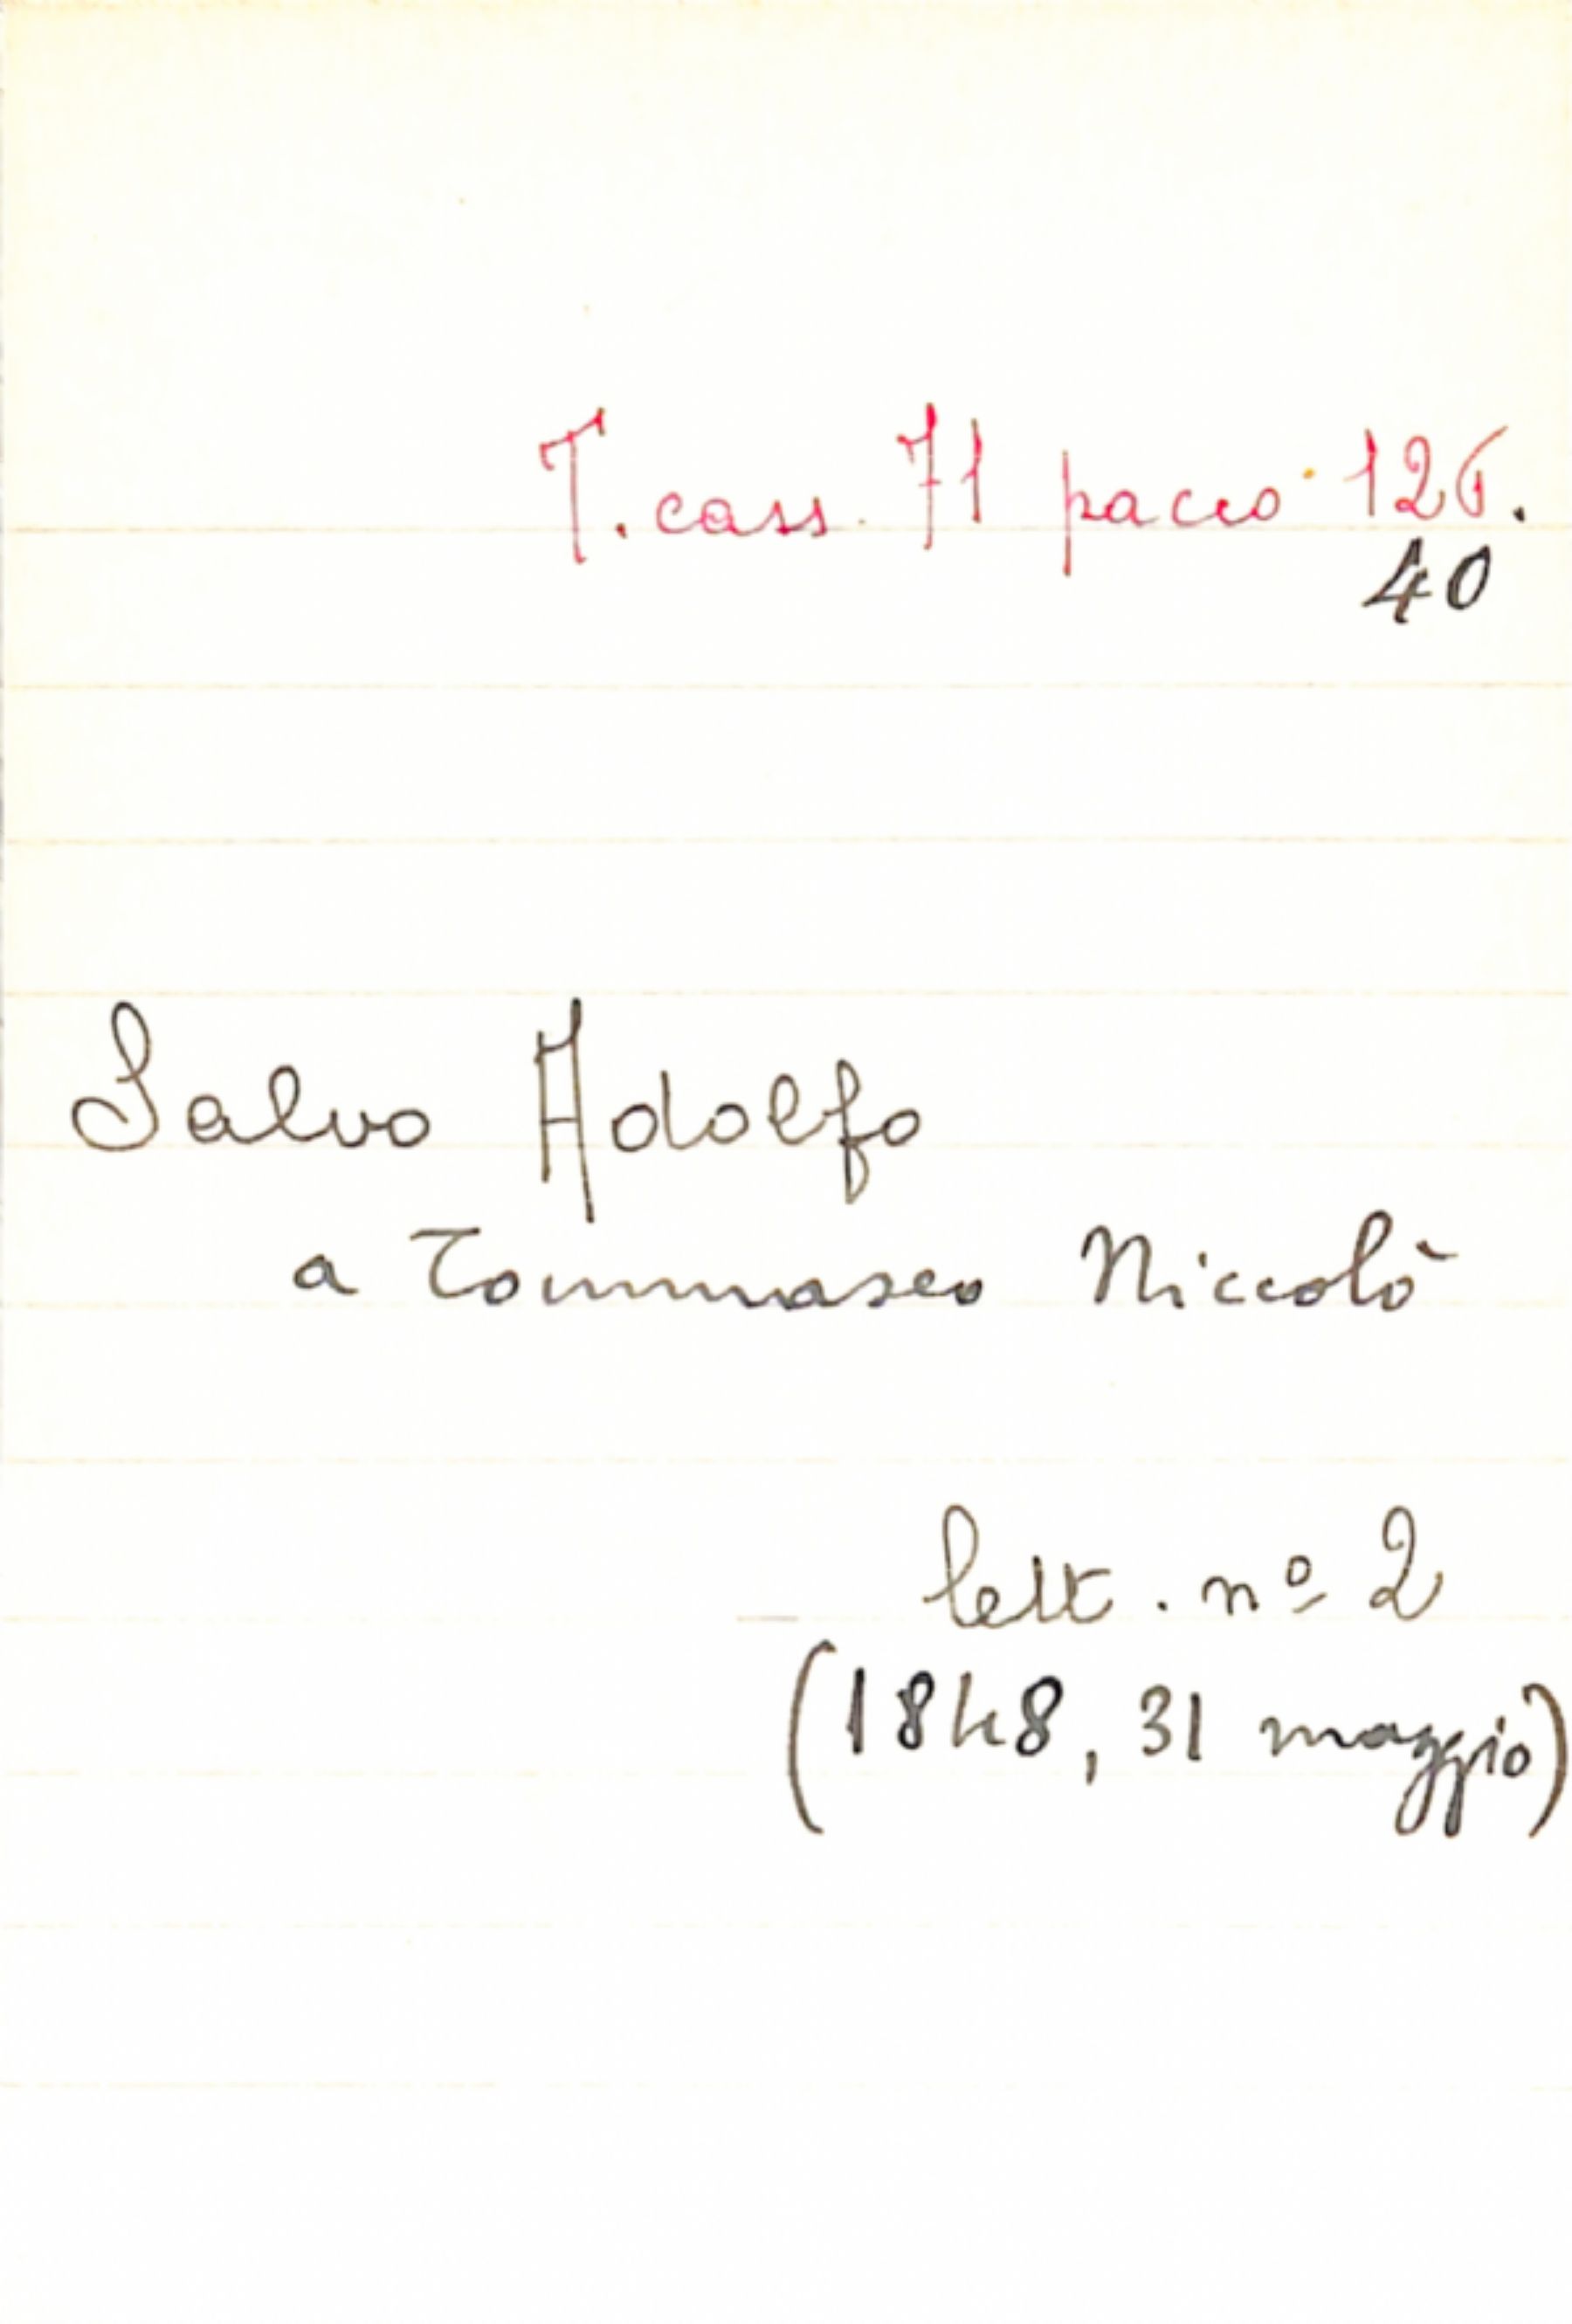 T. cass. 71 pacco 126.
40
Salvo Adolfo
a Tommaseo Niccolò
lett. nº 2
(1848, 31 maggio)